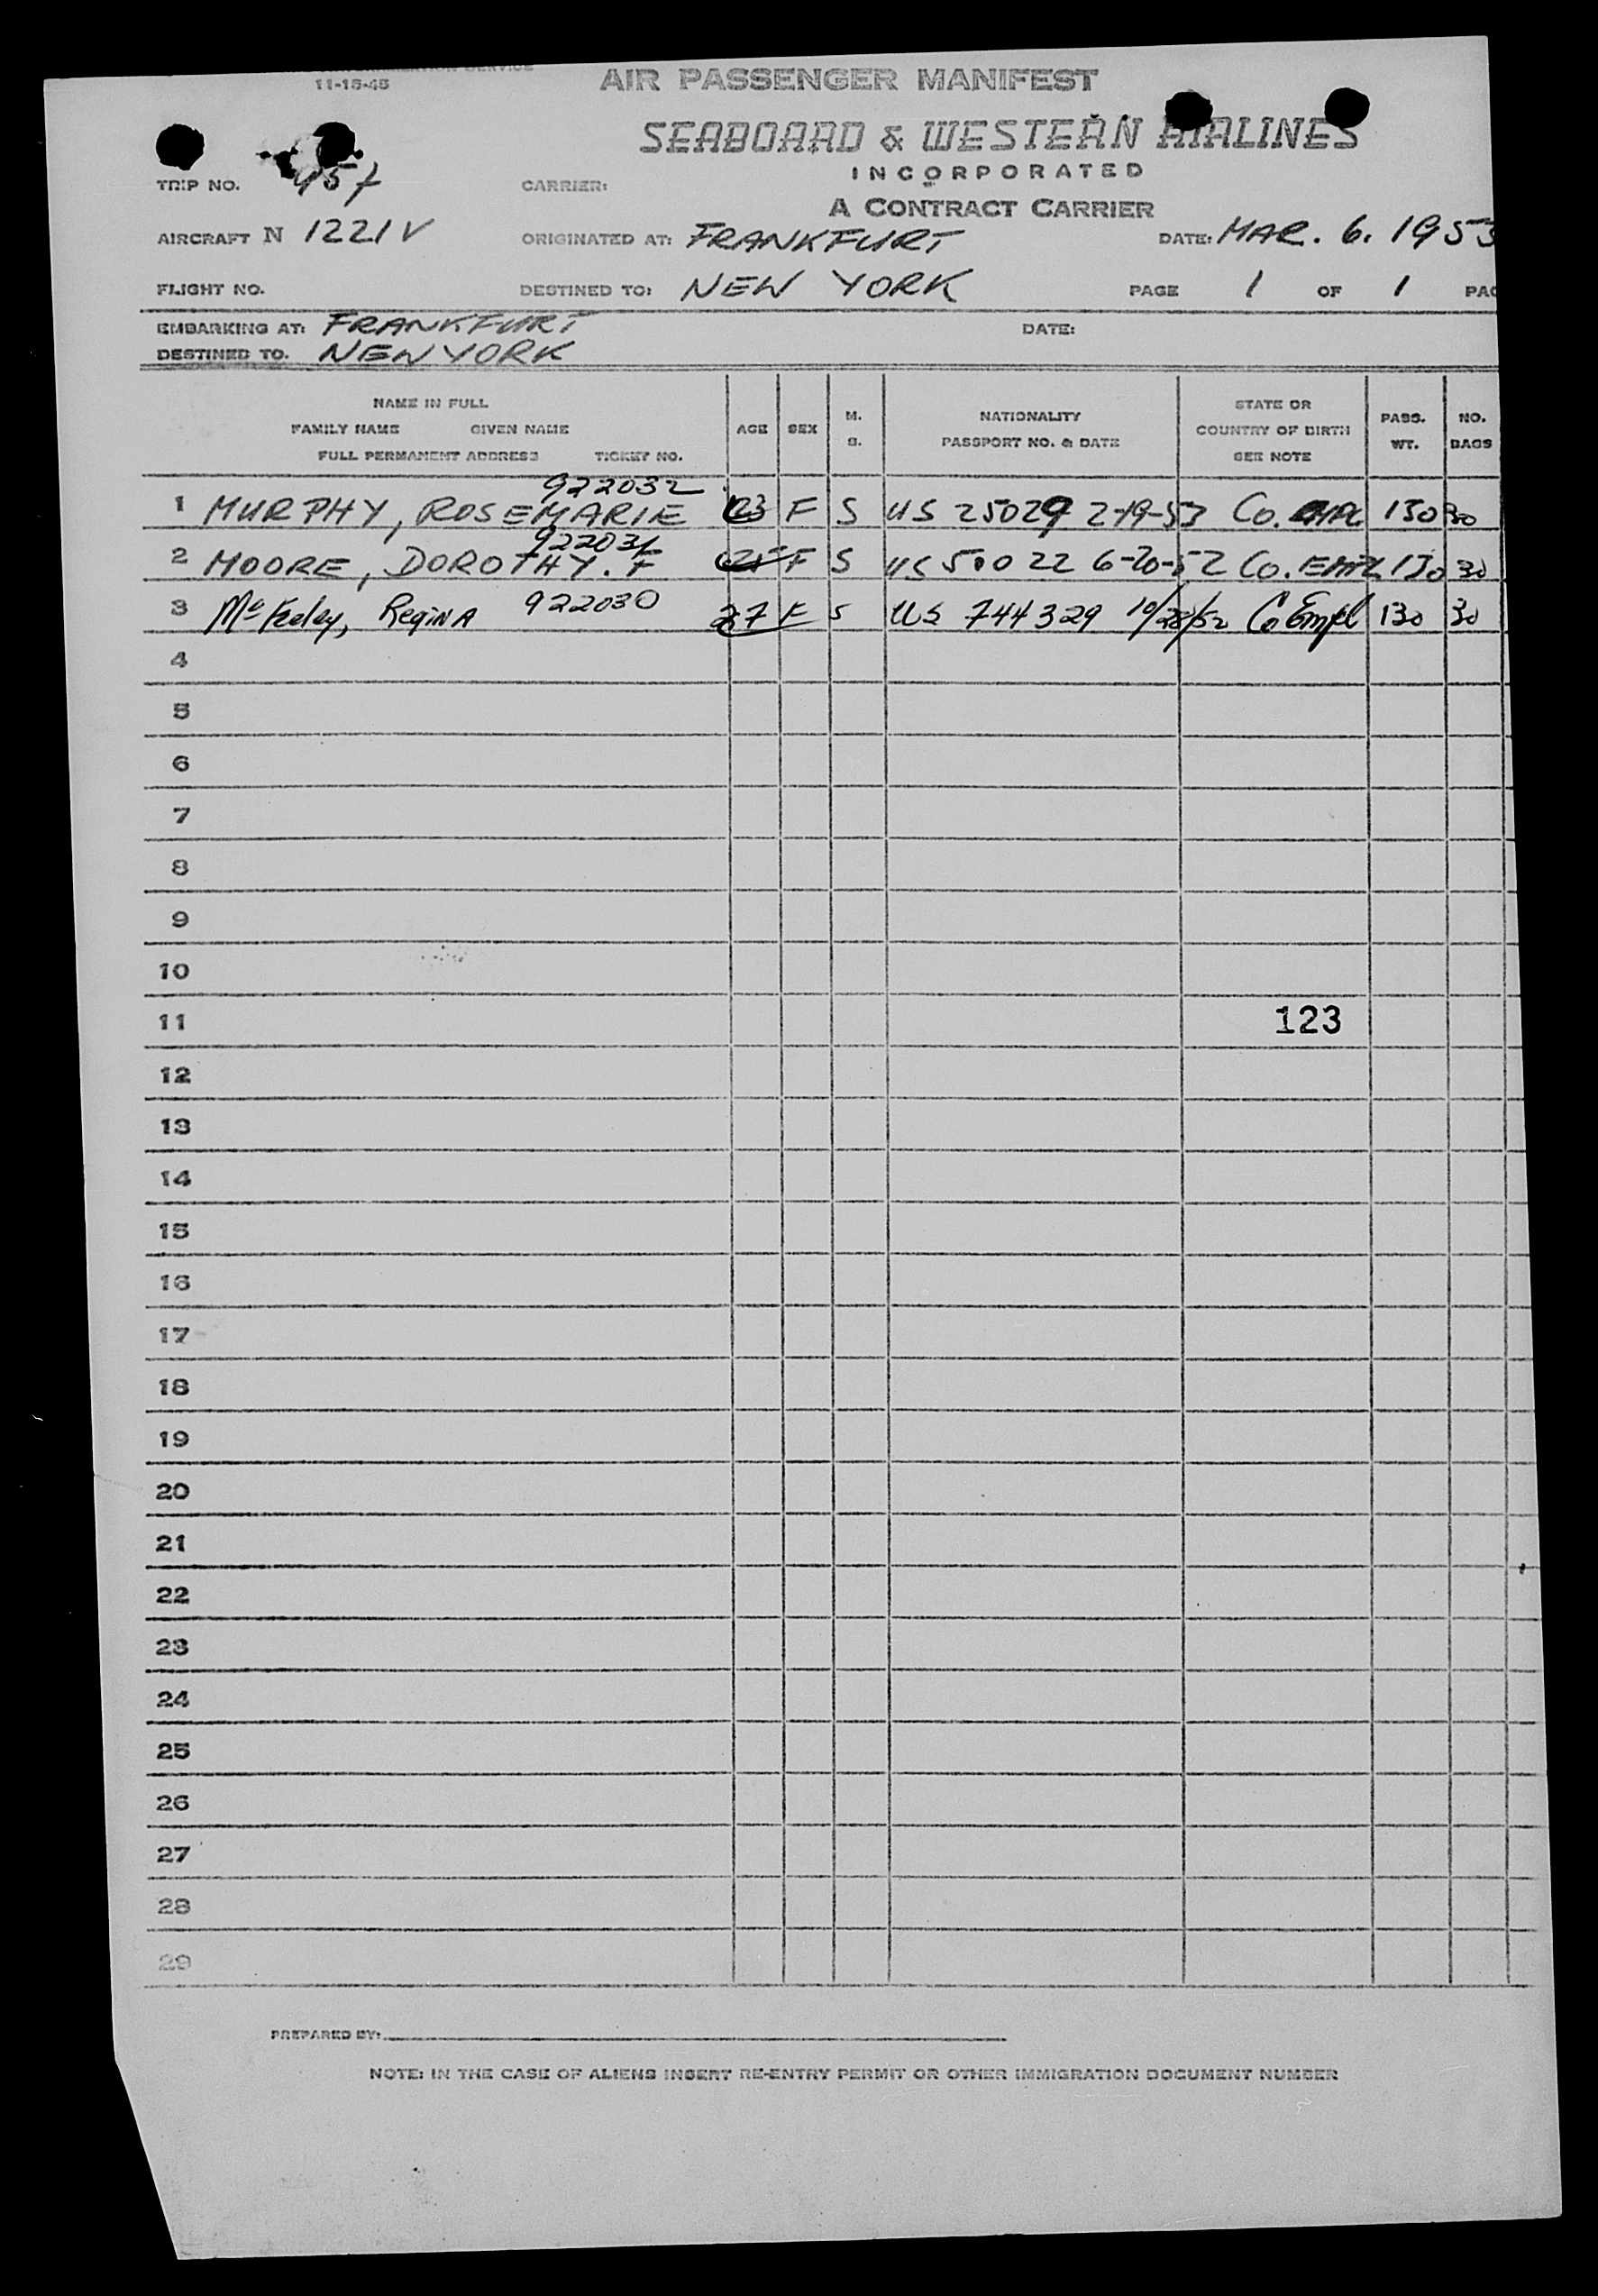 11-15-45
AIR PASSENGER MANIFEST
SEABOARD & WESTERN AIRLINES
INCORPORATED
A CONTRACT CARRIER
TRIP NO. CARRIER:
AIRCRAFT N 1221V ORIGINATED AT: FRANKFURT DATE: MAR. 6. 1953
FLIGHT NO. DESTINED TO: NEW YORK PAGE 1 OF 1
EMBARKING AT: FRANKFURT DATE:
DESTINED TO. NEW YORK
NAME IN FULL
FAMILY NAME GIVEN NAME
FULL PERMANENT ADDRESS TICKET NO.
AGE SEX M. S.
NATIONALITY
PASSPORT NO. & DATE
STATE OR
COUNTRY OF BIRTH
SEE NOTE
PASS. WT.
NO. BAGS
922032
1 MURPHY, ROSEMARIE 23 F S US 25029 2-19-53 Co. 130 30
922031
2 MOORE, DOROTHY. F 25 F S US 50022 6-20-52 Co. EMPL 130 30
3 Regina 922030 27 F S US 744329 10/28/52 Co Empl 130 30
4
5
6
7
8
9
10
11 123
12
13
14
15
16
17
18
19
20
21
22
23
24
25
26
27
28
29
PREPARED BY:
NOTE: IN THE CASE OF ALIENS INSERT RE-ENTRY PERMIT OR OTHER IMMIGRATION DOCUMENT NUMBER